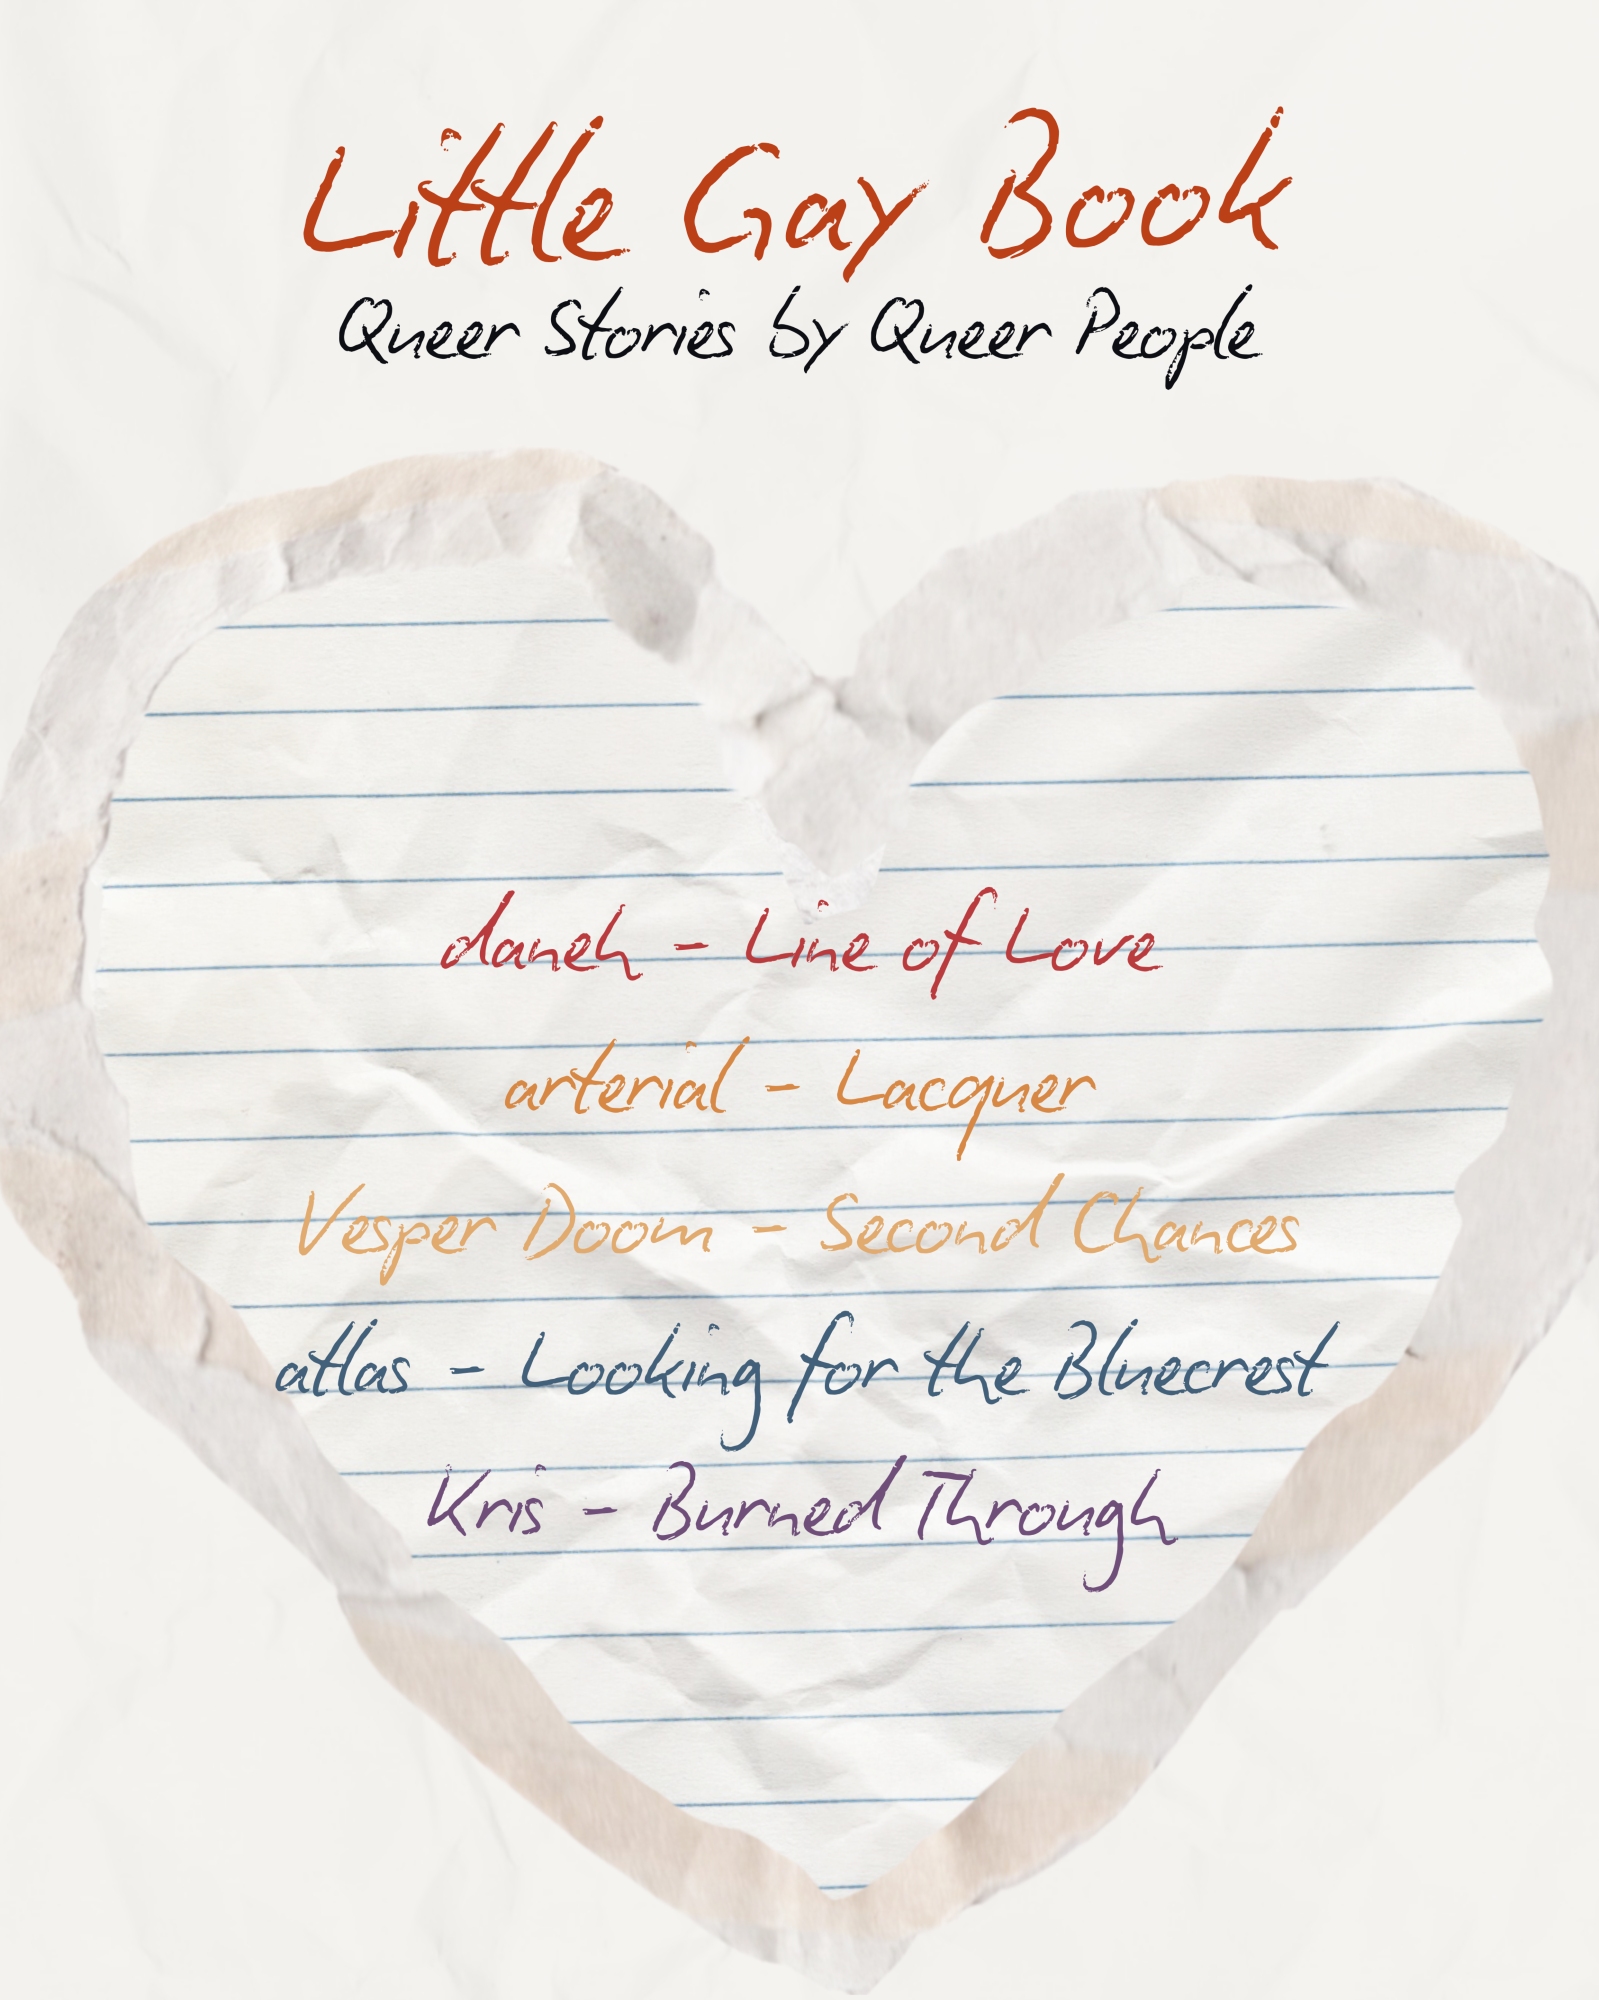 Little Gay Book
Queer Stories by Queer People
daneh - Line of Love
arterial - Lacquer
Vesper Doom - Second Chances
atlas - Looking for the Bluecrest
Kris - Burned Through